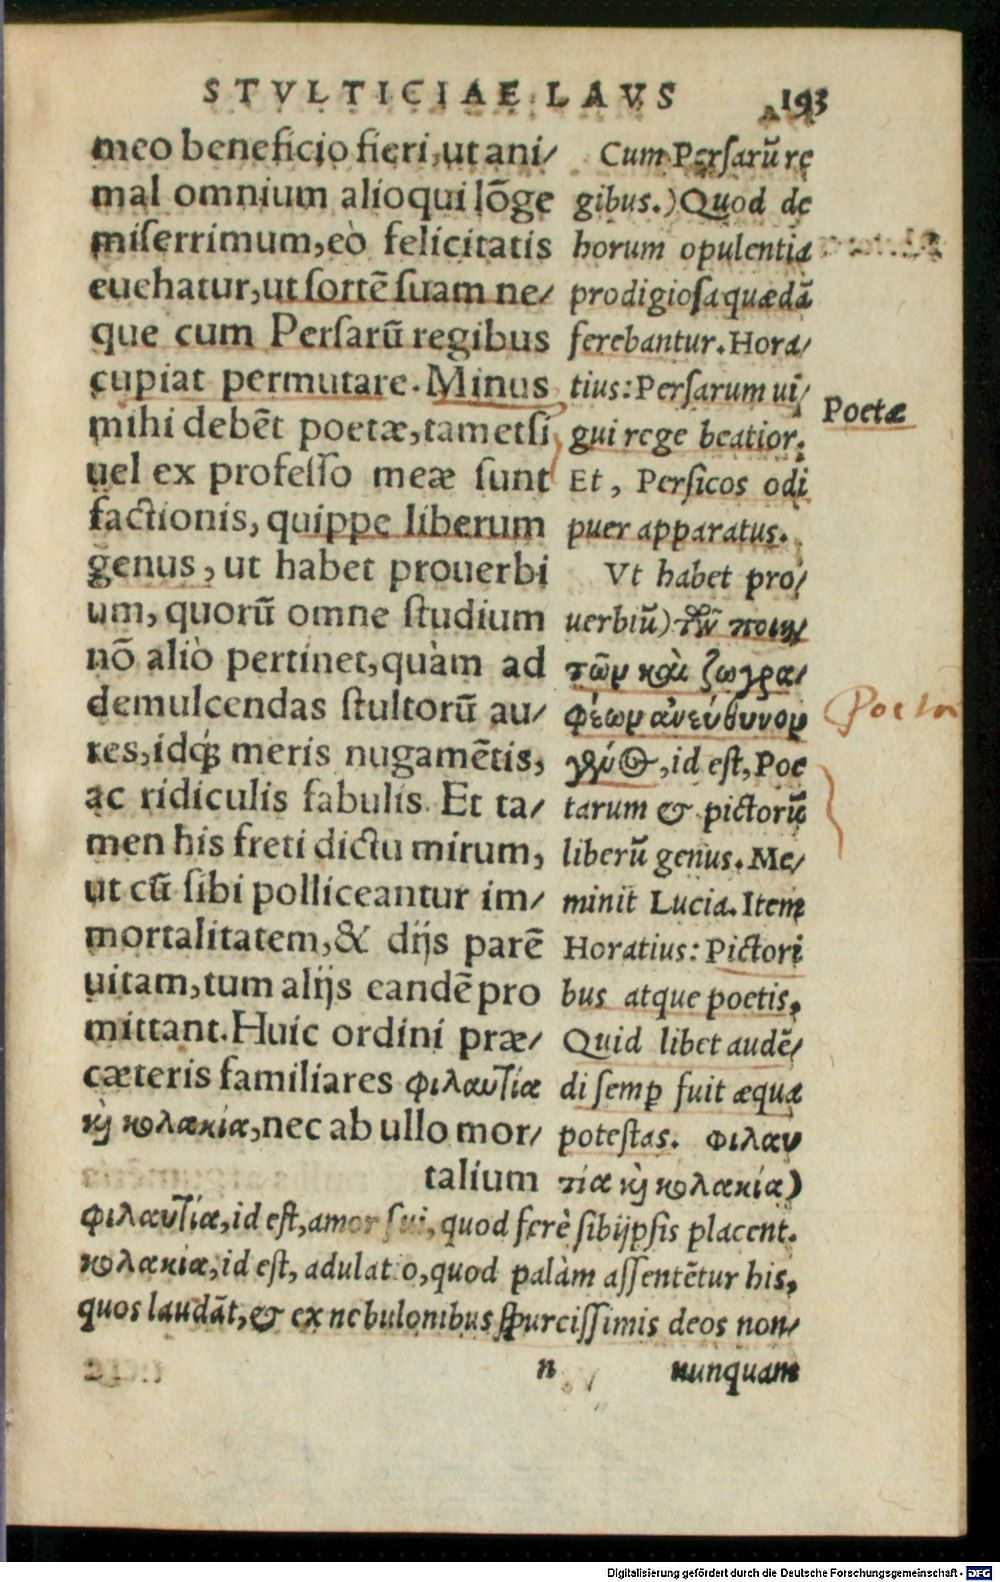 STVLTICIAE LAVS 193
meo beneficio fieri, ut ani/
mal omnium alioqui lõge
miserrimum, eò felicitatis
euehatur, ut sortẽ suam ne/
que cum Persarũ regibus
cupiat permutare. Minus
mihi debẽt poetæ, tametsi
uel ex professo meæ sunt
factionis, quippe liberum
genus, ut habet prouerbi
um, quorũ omne studium
nõ aliò pertinet, quàm ad
demulcendas stultorũ au/
res, idq́; meris nugamẽtis,
ac ridiculis fabulis. Et ta/
men his freti dictu mirum,
ut cũ sibi polliceantur im/
mortalitatem, & dijs parẽ
uitam, tum alijs eandẽ pro
mittant. Huic ordini præ/
cæteris familiares φιλαυτία
ϗ κολακία, nec ab ullo mor/
talium
Cum Persarũ re
gibus.) Quod de
horum opulentia
prodigiosa quædã
ferebantur. Hora/
tius: Persarum ui/
gui rege beatior.
Et, Persicos odi
puer apparatus.
Vt habet pro/
uerbiũ) τῶν ποιη
τῶν καὶ ζωγρα/
φέων ἀνεύθυνον
γένος, id est, Poe
tarum & pictorũ
liberũ genus. Me/
minit Lucia. Item
Horatius: Pictori
bus atque poetis,
Quid libet audẽ/
di semp fuit æqua
potestas. φιλαυ
τία ϗ κολακία)
Poetæ
Poeta
φιλαυτία, id est, amor sui, quod ferè sibijpsis placent.
κολακία, id est, adulatio, quod palàm assentẽtur his,
quos laudãt, & ex nebulonibus spurcissimis deos non/
n nunquam
Digitalisierung gefördert durch die Deutsche Forschungsgemeinschaft - DFG